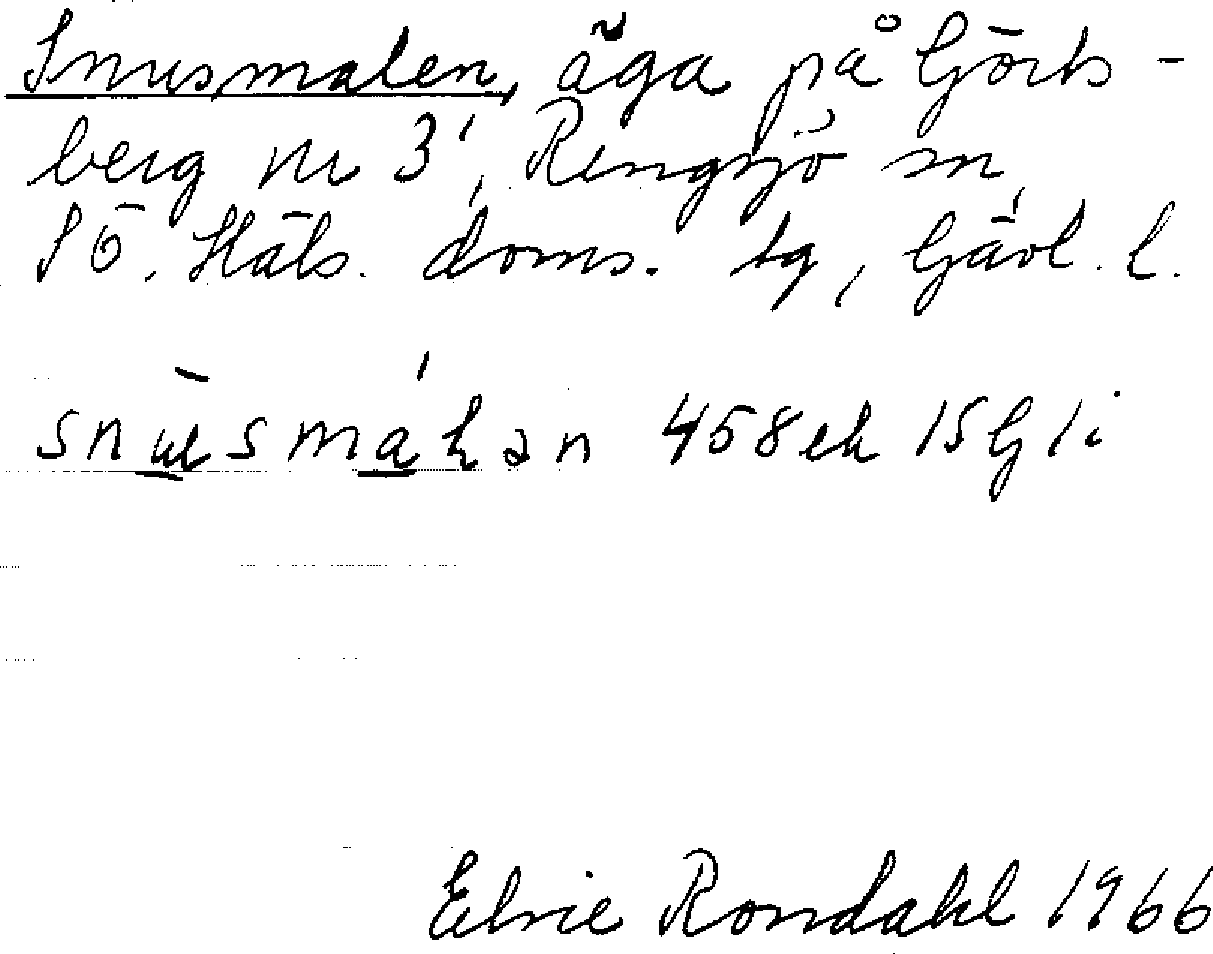 Snusmalen, äga på Görts-
berg nr 3, Rengsjö sn,
SÖ. Häls. doms. tg, Gävl. l.
458eh 15G 1i
Elsie Rondahl 1966